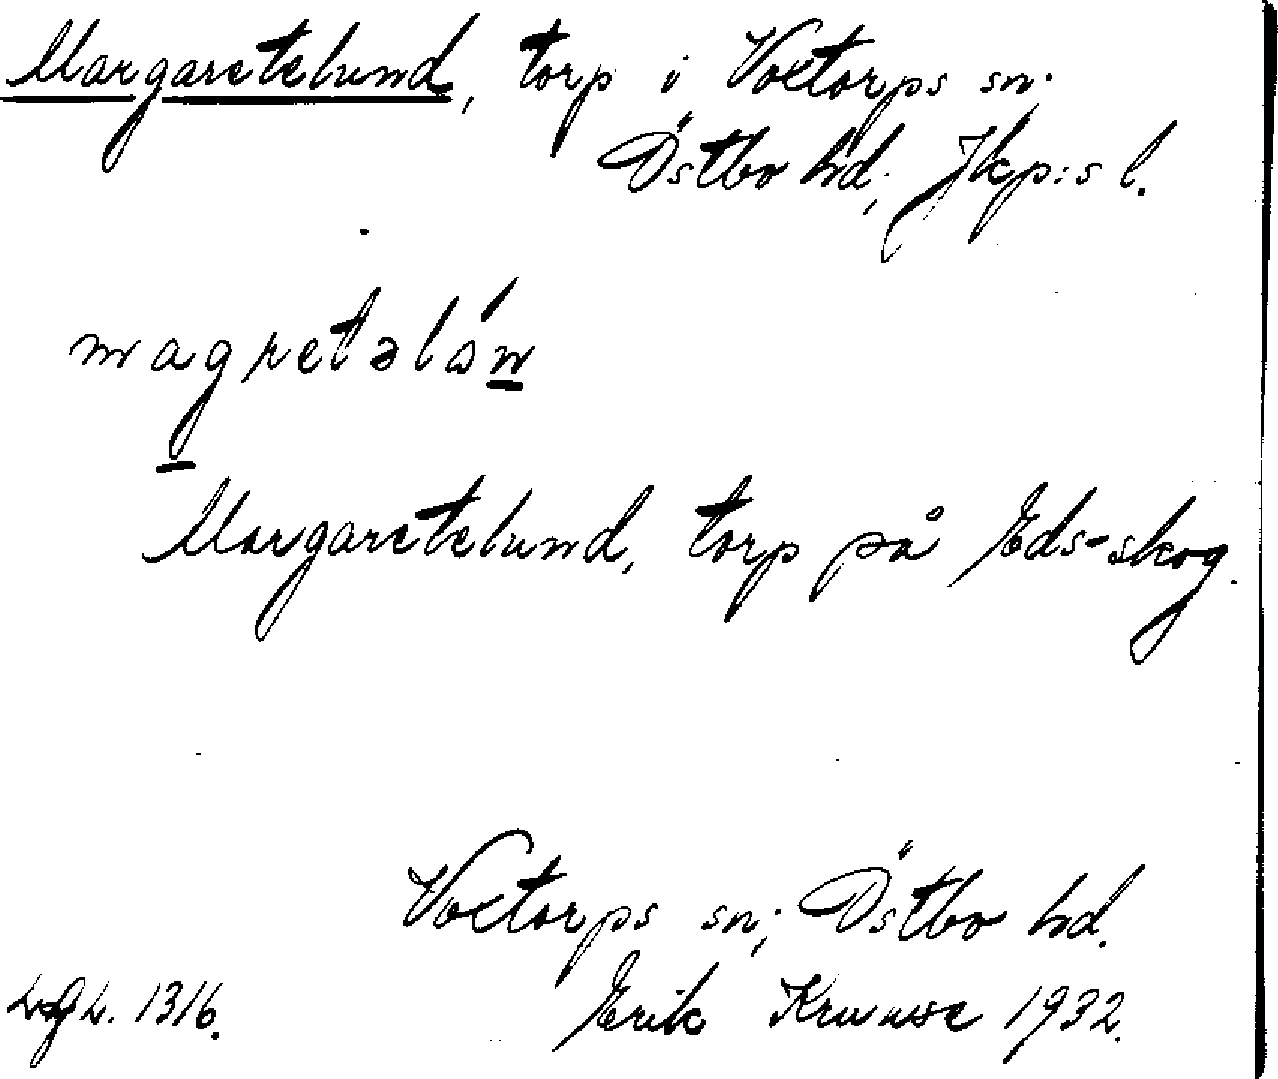 Margaretelund, torp i Voxtorps sn.
Östbo hd; Jkp:s l.
magretəlón
Margaretelund, torp på Eds-skog.
Voxtorps sn; Östbo hd.
1316. Erik Kruuse 1932.